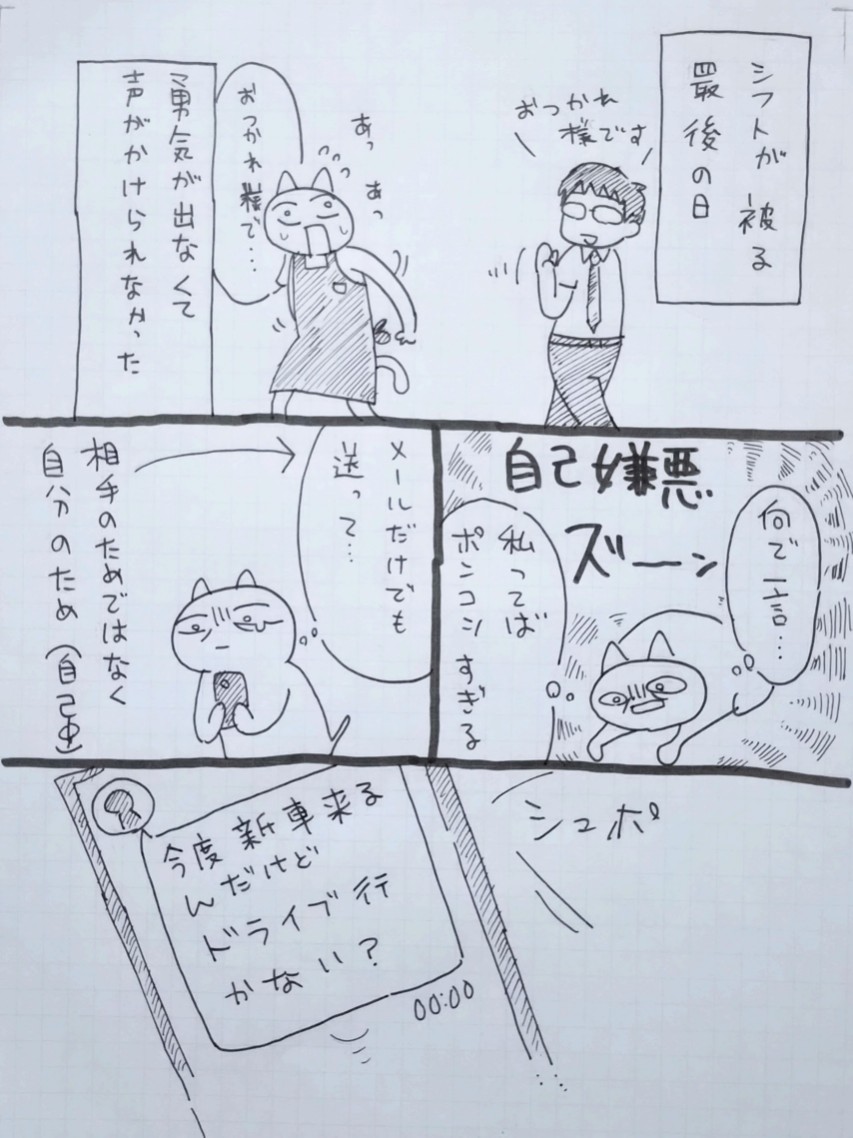 シフトが被る
最後の日
おつかれ
様です
あっ
あっ
おつかれ様で…
勇気が出なくて
声がかけられなかった
何で一言…
自己嫌悪
ズーン
私ってば
ポンコツすぎる
メールだけでも
送って…
相手のためではなく
自分のため(自己中)
シュポ
今度新車来る
んだけど
ドライブ行
かない?
00:00